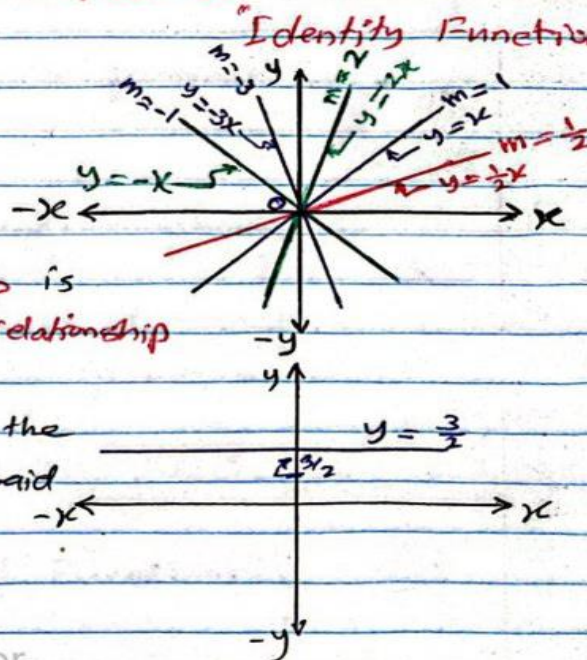 "Identity Functio
m=-1
m=-3
y
m=2
y=-3x
y=2x
m=1
y=x
m=1/2
y=-x
y=1/2x
-x
o
x
is
elationship
-y
y
the
y = 3/2
aid
3/2
-x
x
-y
or